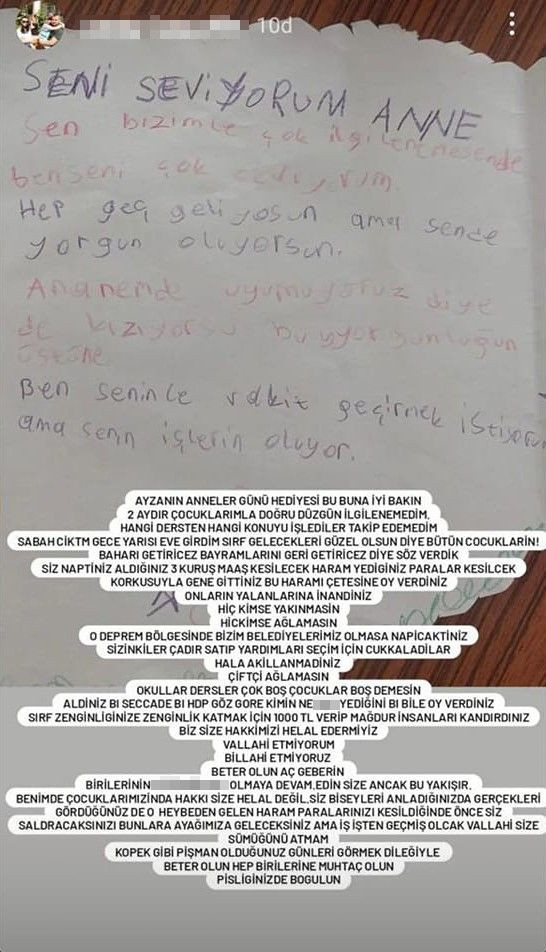 10d
SENİ SEVİYORUM ANNE
Sen bizimle çok ilgilenmesende
ben seni çok
Hep geç geliyosun ama sende
yorgun oluyorsun.
Ananemde uyumuyoruz diye
de kızıyorsu bu yorgunluğun
üstüne
Ben seninle vakit geçirmek istiyoru
ama senn işlerin oluyor.
AYZANIN ANNELER GÜNÜ HEDİYESİ BU BUNA İYİ BAKIN
2 AYDIR ÇOCUKLARIMLA DOĞRU DÜZGÜN İLGİLENEMEDİM,
HANGİ DERSTEN HANGİ KONUYU İŞLEDİLER TAKİP EDEMEDİM
SABAH CİKTM GECE YARISI EVE GİRDİM SIRF GELECEKLERİ GÜZEL OLSUN DİYE BÜTÜN COCUKLARIN!
BAHARI GETİRİCEZ BAYRAMLARINI GERİ GETİRİCEZ DİYE SÖZ VERDİK
SİZ NAPTİNİZ ALDIĞINIZ 3 KURUŞ MAAŞ KESİLECEK HARAM YEDİGİNİZ PARALAR KESİLCEK
KORKUSUYLA GENE GİTTİNİZ BU HARAMİ ÇETESİNE OY VERDİNİZ
ONLARIN YALANLARINA İNANDİNİZ
HİÇ KİMSE YAKINMASIN
HİCKİMSE AĞLAMASIN
O DEPREM BÖLGESİNDE BİZİM BELEDİYELERİMİZ OLMASA NAPİCAKTİNİZ
SİZİNKİLER ÇADIR SATIP YARDIMLARI SEÇİM İÇİN CUKKALADİLAR
HALA AKİLLANMADİNİZ
ÇİFTÇİ AĞLAMASIN
OKULLAR DERSLER ÇOK BOŞ ÇOCUKLAR BOŞ DEMESİN
ALDİNİZ BI SECCADE BI HDP GÖZ GORE KİMİN NE YEDİĞİNİ BI BİLE OY VERDİNİZ
SIRF ZENGİNLİGİNİZE ZENGİNLİK KATMAK İÇİN 1000 TL VERİP MAĞDUR İNSANLARI KANDIRDINIZ
BİZ SİZE HAKKİMİZİ HELAL EDERMİYİZ
VALLAHİ ETMİYORUM
BİLLAHİ ETMİYORUZ
BETER OLUN AÇ GEBERİN
BİRİLERİNİN OLMAYA DEVAM.EDİN SİZE ANCAK BU YAKIŞIR.
BENİMDE ÇOCUKLARIMIZINDA HAKKI SİZE HELAL DEĞİL.SİZ BISEYLERİ ANLADIĞINIZDA GERÇEKLERİ
GÖRDÜĞÜNÜZ DE O HEYBEDEN GELEN HARAM PARALARINIZI KESİLDİĞİNDE ÖNCE SİZ
SALDRACAKSINIZI BUNLARA AYAĞIMIZA GELECEKSİNİZ AMA İŞ İŞTEN GEÇMİŞ OLCAK VALLAHİ SİZE
SÜMÜĞÜNÜ ATMAM
KOPEK GİBİ PİŞMAN OLDUĞUNUZ GÜNLERİ GÖRMEK DİLEĞİYLE
BETER OLUN HEP BİRİLERİNE MUHTAÇ OLUN
PİSLİGİNİZDE BOGULUN